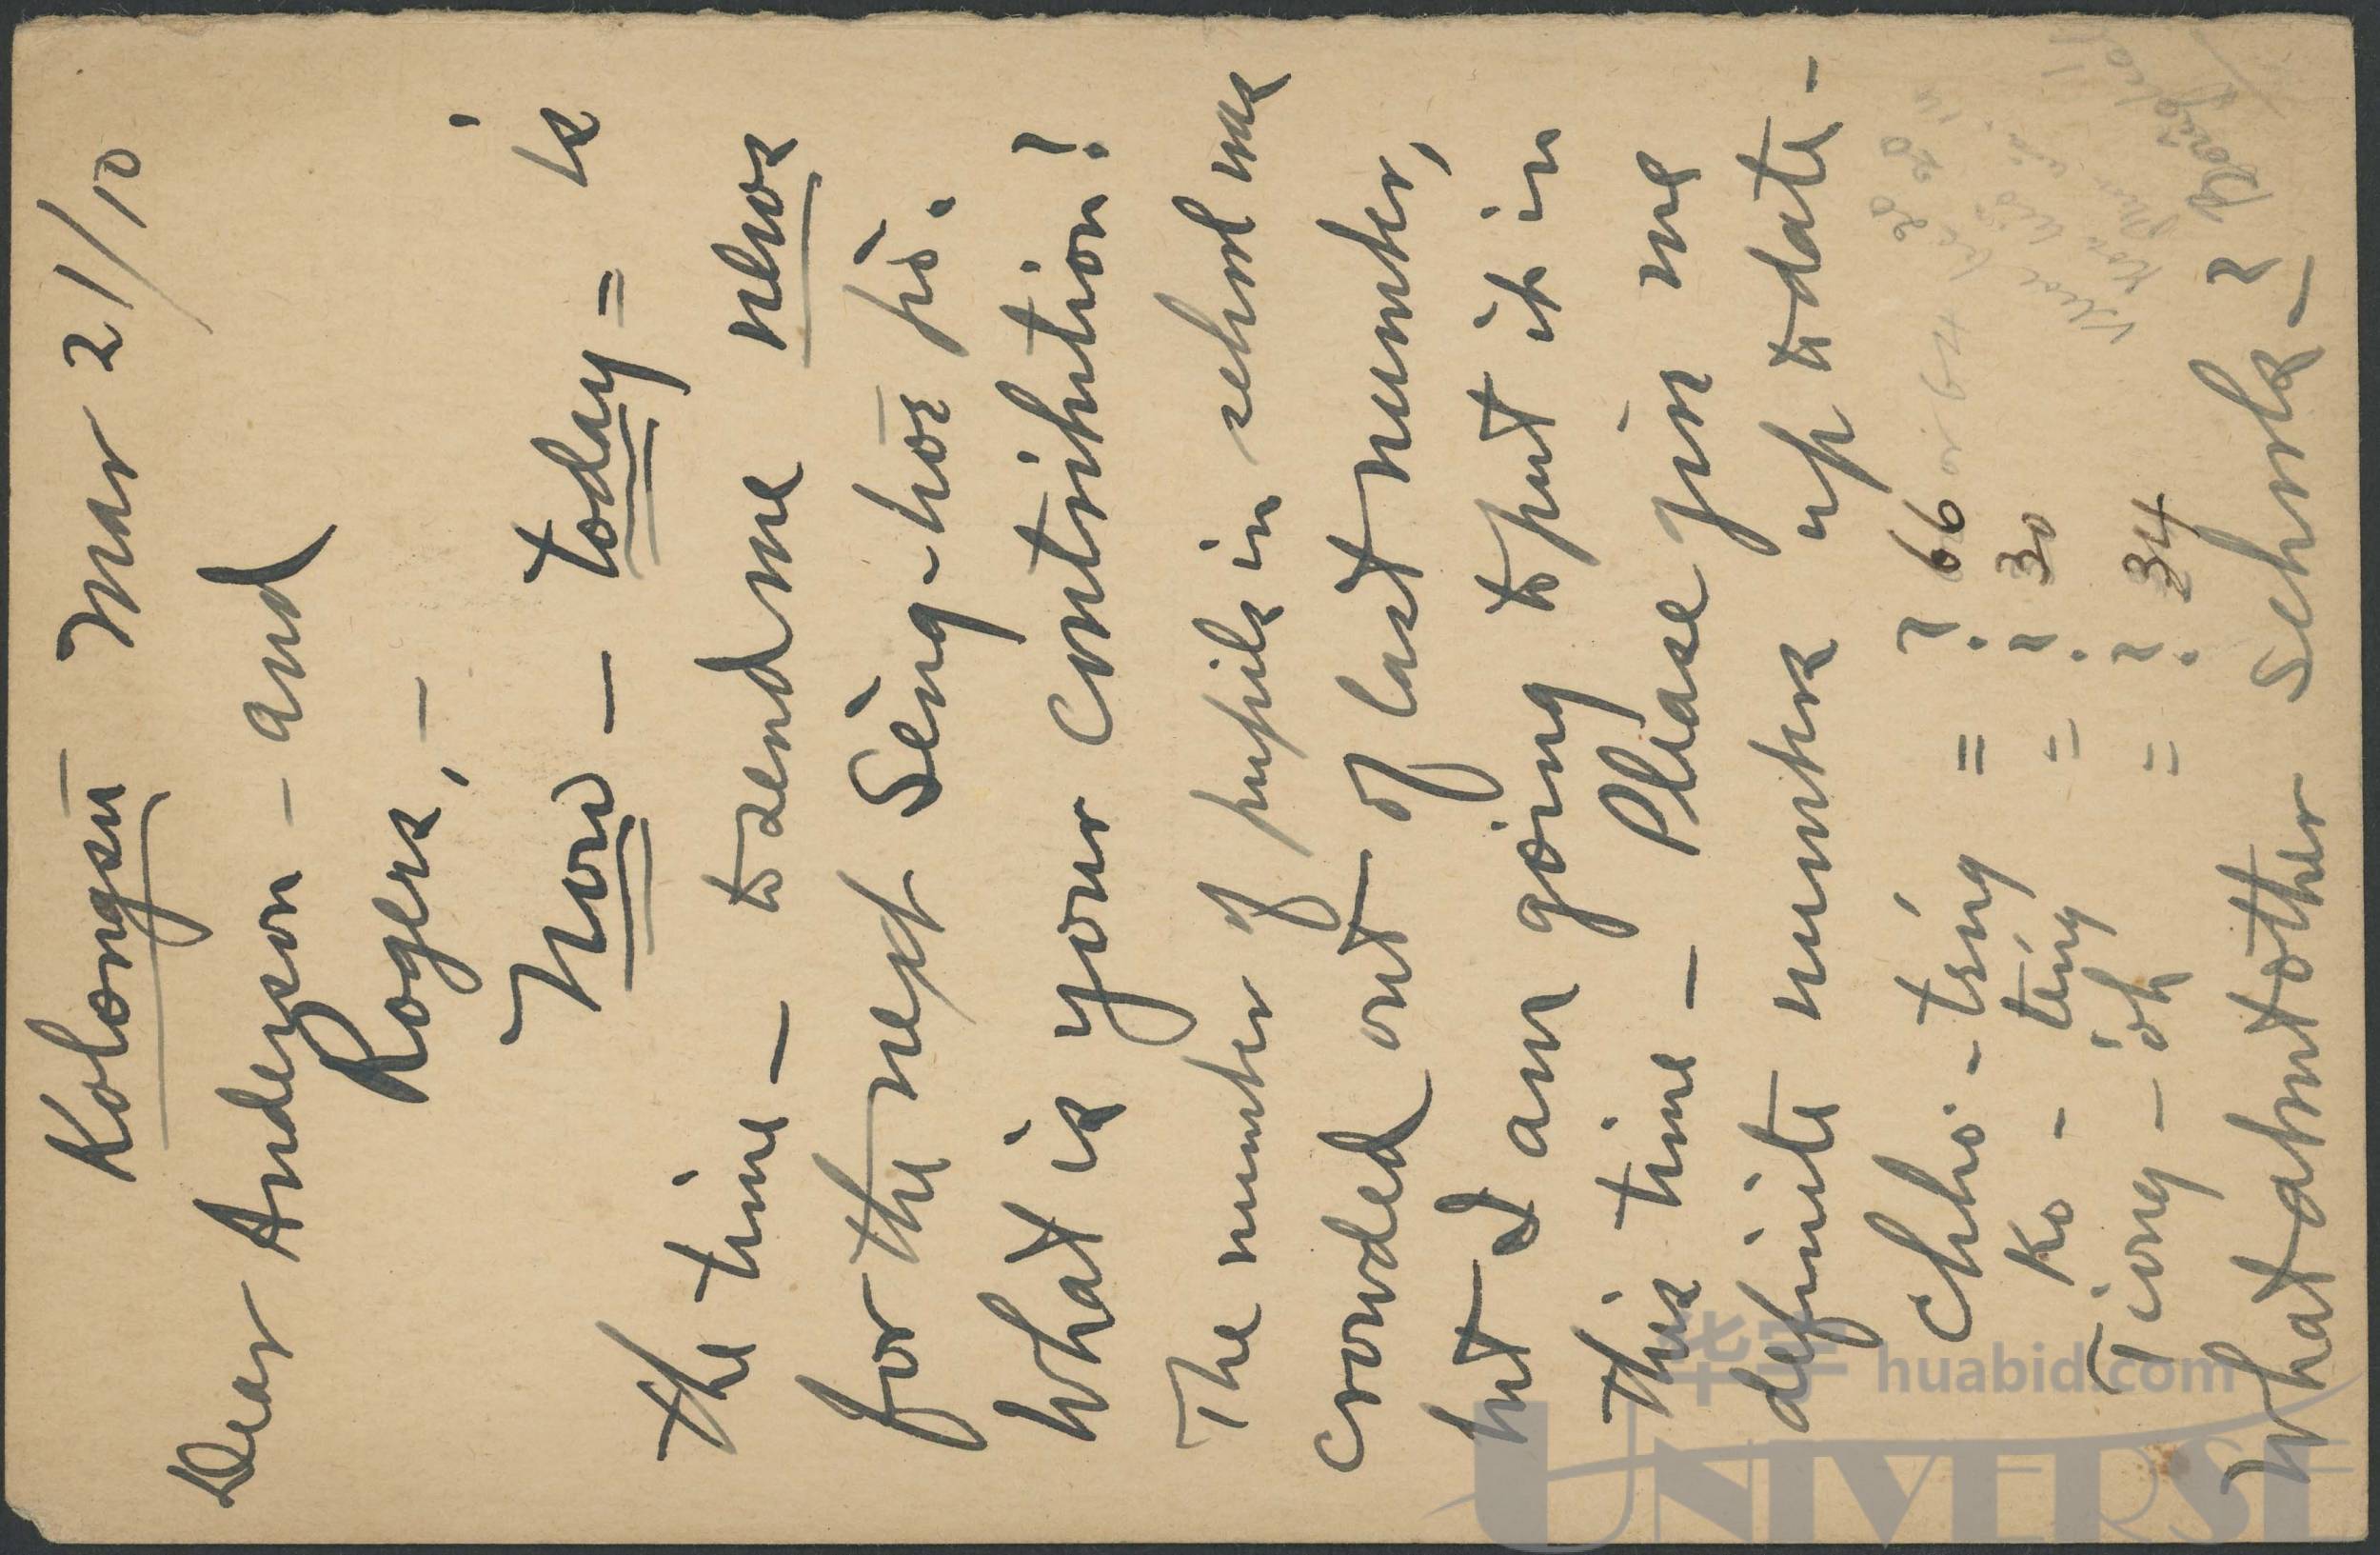 Kolongsu Mar 21/10
Dear Anderson - and
Rogers, -
Now - today = is
the time - to send me news
for the next Sèng-hōe pò.
What is your contribution?
The number of pupils in school was
crowded out - of last number,
but I am going to put it in
this time - Please give me
definite numbers up to date -
Chho. - tsíng = ? 66 or 64
Ko - téng = ? 30
Tiong - òh = ? 34
What about other schools - ?
华宇 huabid.com
UNIVERSE